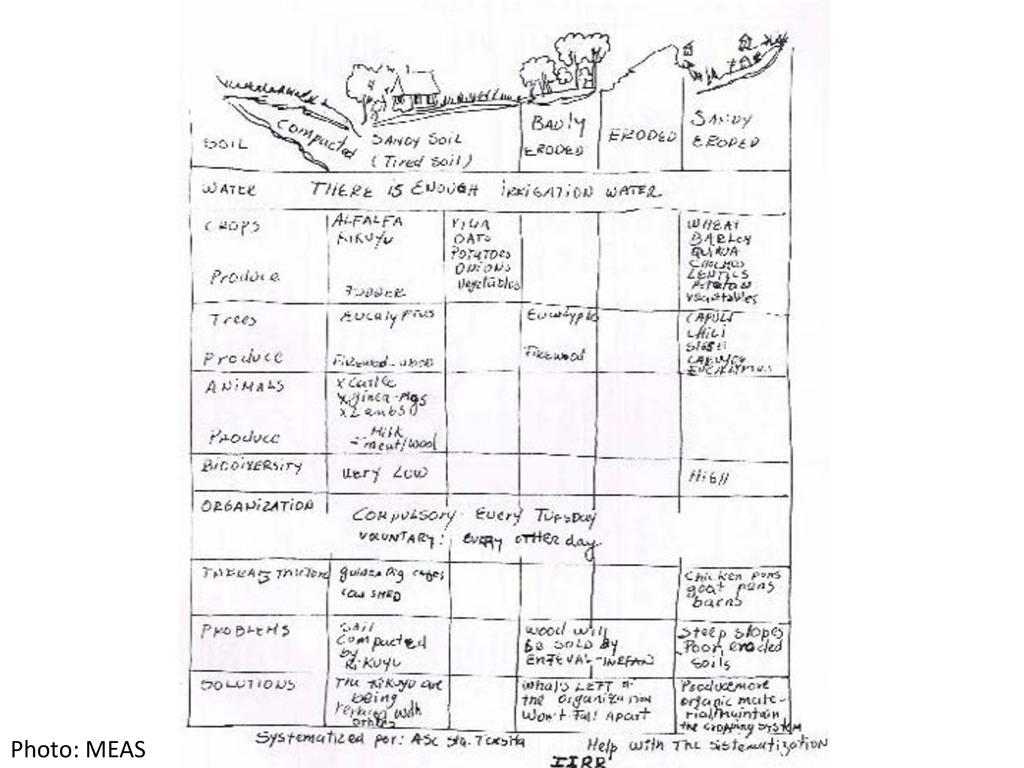 SOIL
Compacted
SANDY SOIL
(Tired soil)
BADLY
ERODED
ERODED
SANDY
ERODED
WATER THERE IS ENOUGH IRRIGATION WATER
CROPS
Produce
ALFALFA
KIKUYU
FODDER
OATS
POTATOES
ONIONS
vegetables
WHEAT
BARLEY
LENTILS
vegetables
Trees
Produce
Eucalyptus
FIREWOOD
Firewood
CAPULI
CHILI
EUCALYPTUS
ANIMALS
Produce
x Cattle
x
x Lambs
Milk
meat/wool
BIODIVERSITY
very Low
HIGH
ORGANIZATION
COMPULSORY: EVERY TUESDAY
VOLUNTARY: EVERY OTHER day
guinea pig cages
COW SHED
Chicken pens
goat pens
barns
PROBLEMS
Soil
Compacted
by
KIKUYU
WOOD WILL
BE SOLD BY
Steep slopes
Poor, eroded
soils
SOLUTIONS
The KIKUYU are
being
replaced with
others
What's LEFT of
the organization
Won't fall Apart
Produce more
organic mate-
rial/maintain
the cropping system
Systematized por: Asc Sta. Teresita
Help with The sistematization
IIRR
Photo: MEAS